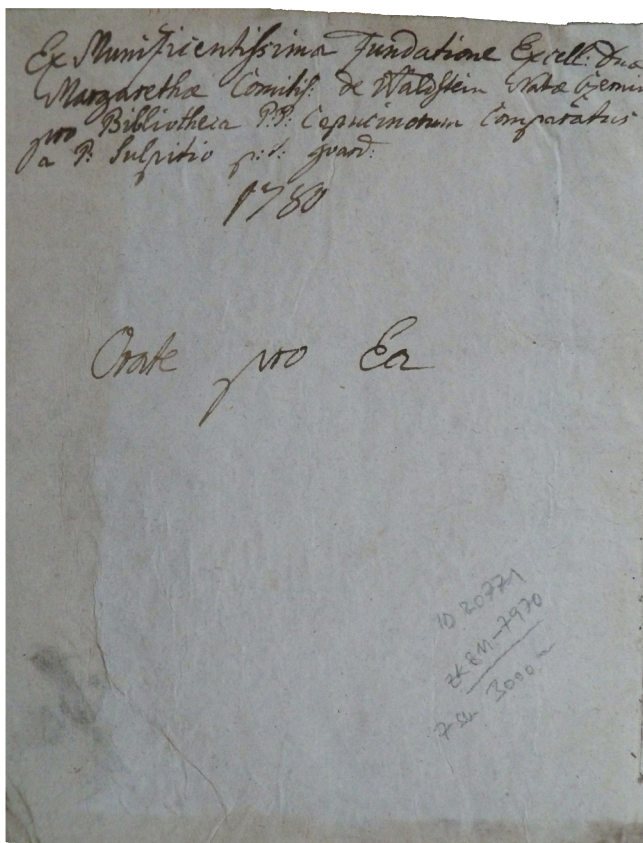 Ex Munificentissima Fundatione Excell: Dnæ
Margarethæ Comitiss: de Waldstein Natæ Czernin
pro Bibliotheca P:P: Capucinorum Comparatus
a P: Sulpitio p: t: guard:
1780
Orate pro Ea
ID 20771
ZK 811-7970
7 sv. 3000.-